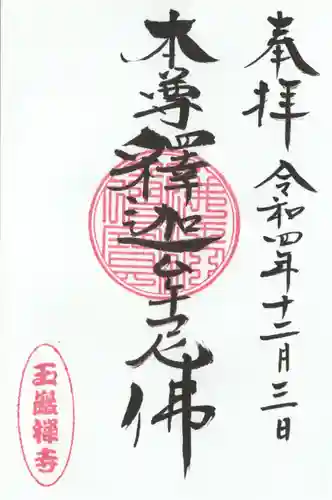 奉拝
令和四年十二月三日
本尊釋迦牟尼佛
玉巌禅寺